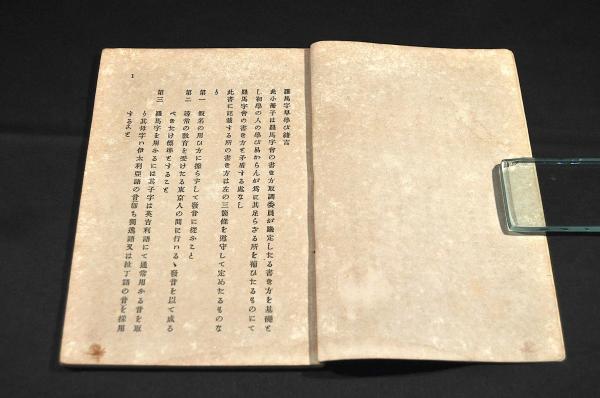 羅馬字早學び緖言
此小冊子は羅馬字會の書き方取調委員が議定したる書き方を基礎と
し初學の人の學び易からんが爲に其足らざる所を補ひたるものにて
羅馬字會の書き方と矛盾する處なし
此書に記載する所の書き方は左の三箇條を遵守して定めたるものな
り
第一 假名の用ひ方に據らずして發音に從ふこと
第二 通常の敎育を受けたる東京人の間に行はるゝ發音を以て成る
べきたけ標準とすること
第三 羅馬字を用ふるには其子字は英吉利語にて通常用ふる音を取
り其母字は伊太利亞語の音即ち獨逸語又は拉丁語の音を採用
すること
1